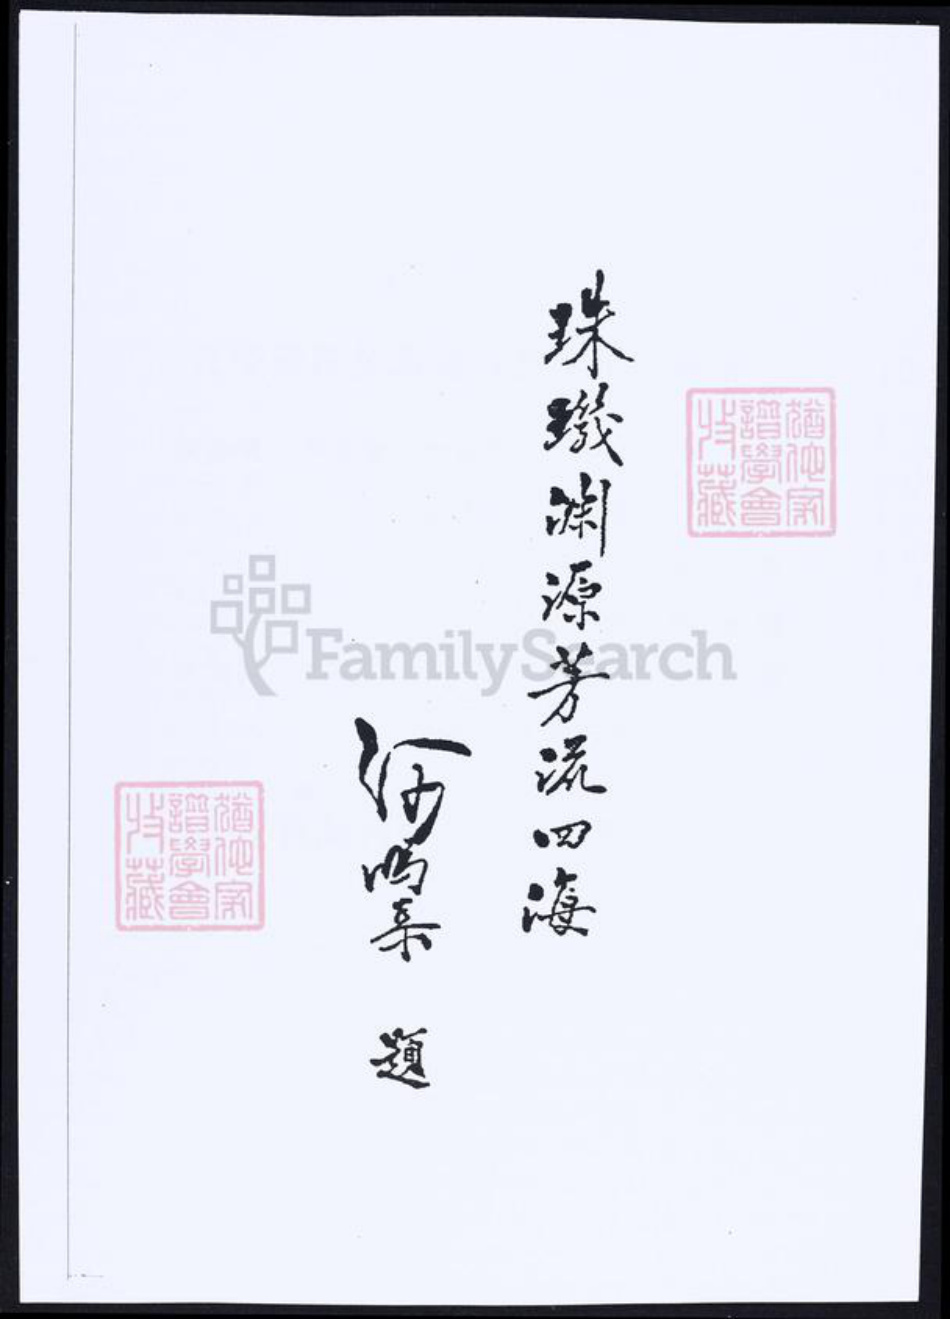 珠璣淵源芳流四海
何鳴 題
猶他家
譜學會
收藏
FamilySearch
猶他家
譜學會
收藏